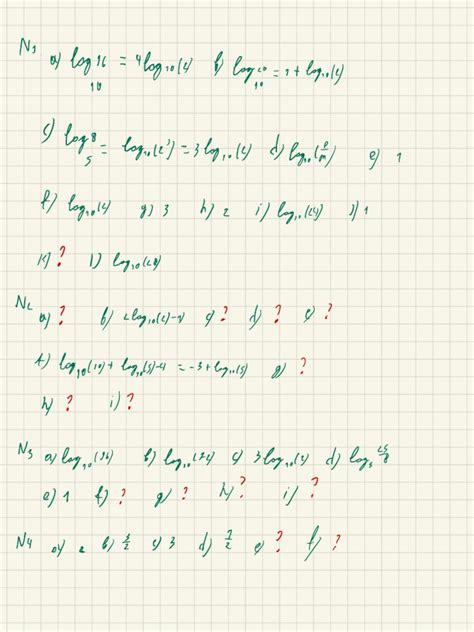 N1 a) log₁₀ 16 = 4log₁₀(2) b) log₁₀ 20 = 1 + log₁₀(2)
c) log₅ 8 = log₁₀(2³) = 3log₁₀(2) d) log₁₀ e) 1
f) log₁₀(2) g) 3 h) 2 i) log₁₀(24) j) 1
k) ? l) log₁₀(28)
N2 a) ? b) 2log₁₀(2)-1) c) ? d) ? e) ?
f) log₁₀(10) + log₁₀(5)-4 = -3 + log₁₀(5) g) ?
h) ? i) ?
N3 a) log₁₀ b) log₁₀ c) 3log₁₀(2) d) log₅ 25/8
e) 1 f) ? g) ? h) ? i) ?
N4 a) 2 b) 3/2 c) 3 d) 7/2 e) ? f) ?